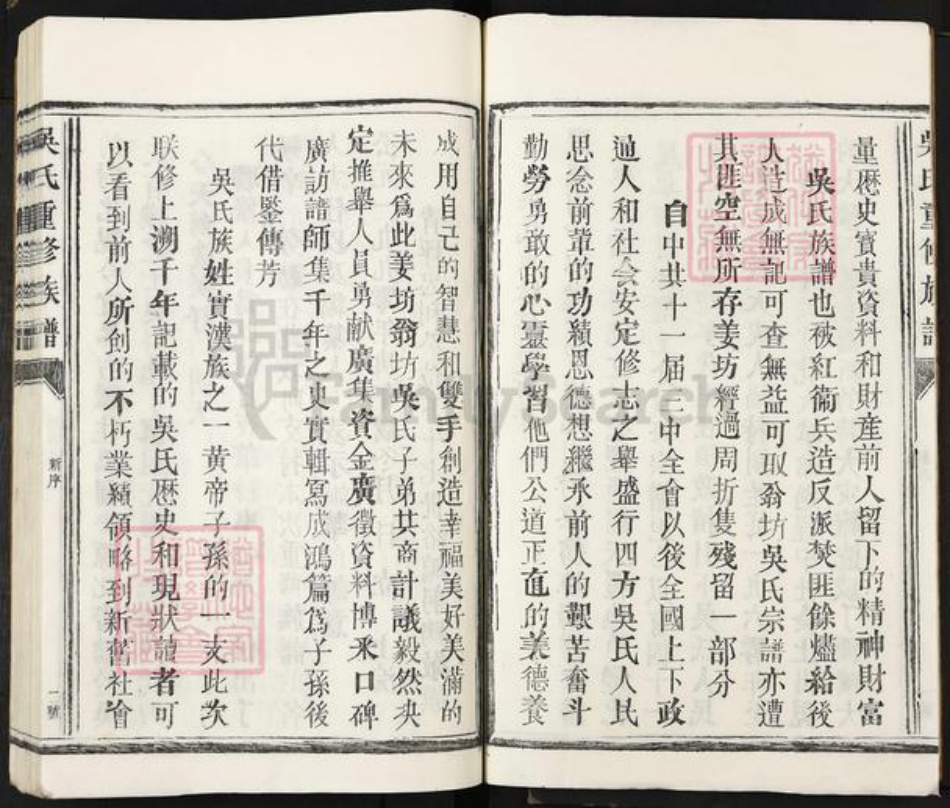 量歷史寶貴資料和財產前人留下的精神財富
吳氏族譜也被紅衞兵造反派焚匪餘燼給後
人造成無記可查無益可取翁坊吳氏宗譜亦遭
其匪空無所存姜坊經過周折隻殘留一部分
自中共十一届三中全會以後全國上下政
通人和社会安定修志之舉盛行四方吳氏人民
思念前輩的功績恩德想繼承前人的艱苦奮斗
勤勞勇敢的心靈學習他們公道正直的美德養
成用自己的智慧和雙手創造幸福美好美滿的
未來爲此姜坊翁坊吳氏子弟共商計議毅然决
定推舉人員勇献廣集資金廣徵資料博釆口碑
廣訪譜師集千年之史實輯寫成鴻篇爲子孫後
代借鑒傳芳
吳氏族姓實漢族之一黃帝子孫的一支此次
联修上溯千年記載的吳氏歷史和現狀讀者可
以看到前人所創的不朽業績領略到新舊社會
吳氏重修族譜
新序
一號
FamilySearch